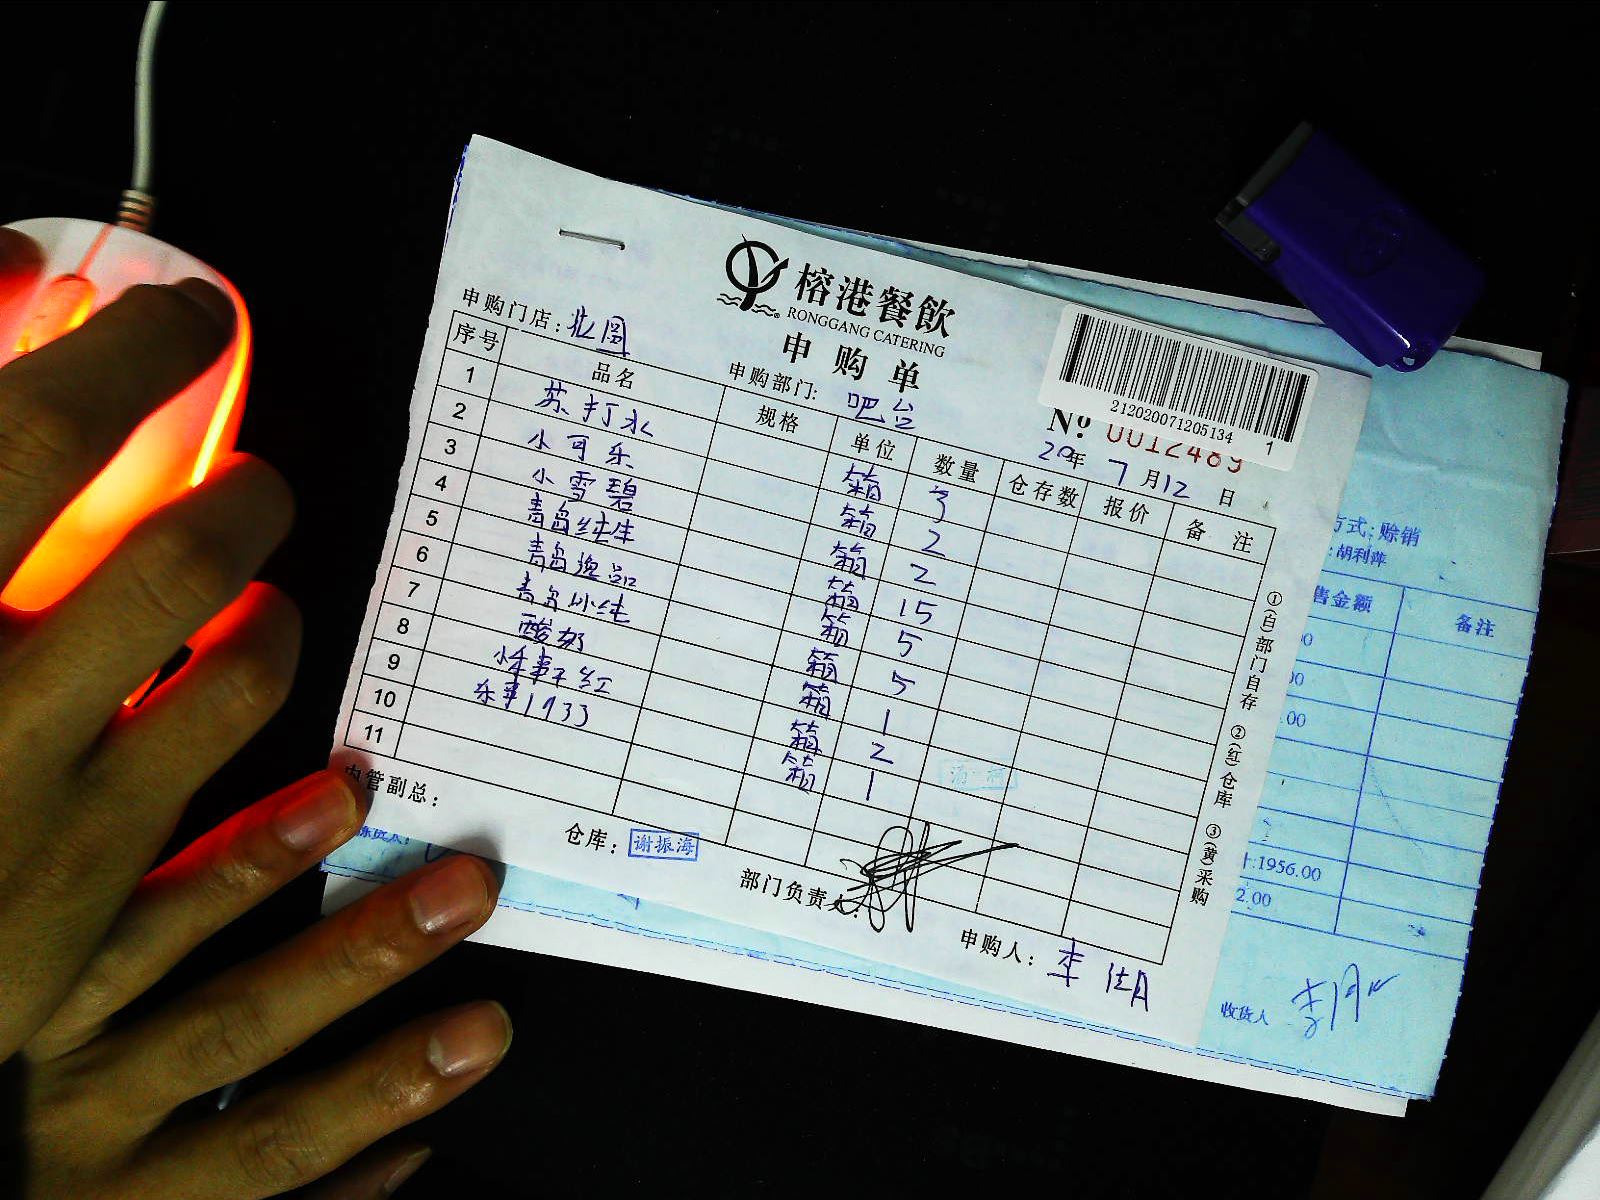 榕港餐飲
RONGGANG CATERING
申购单
申购门店:北园
申购部门: 吧台
212020071205134 1
Nº 0012489
20年 7月12日
序号 品名 规格 单位 数量 仓存数 报价 备注
1 苏打水 箱 3
2 小可乐 箱 2
3 小雪碧 箱 2
4 青岛纯生 箱 15
5 青岛逸品 箱 5
6 青岛小纯 箱 5
7 酸奶 箱 1
8 干红 箱 2
9 1933 箱 1
10
11
①(白)部门自存 ②(红)仓库 ③(黄)采购
内管副总:
仓库: 谢振海
部门负责人:
申购人: 李
方式: 赊销
: 胡利萍
售金额 备注
.00
:1956.00
2.00
收货人